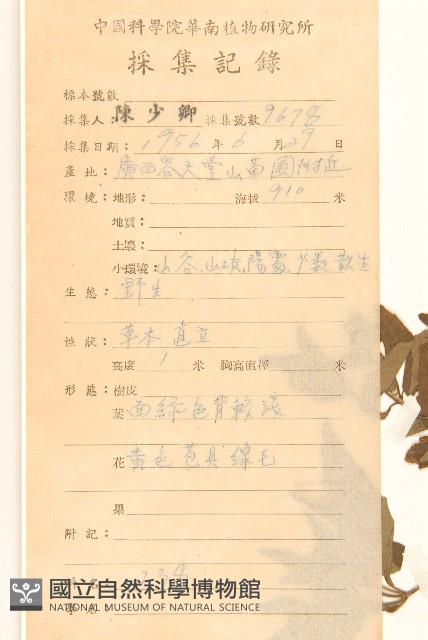 中國科學院華南植物研究所
採集記錄
標本號數
採集人：陳少卿 採集號數 9678
採集日期：1956年6月29日
產地：廣西容天堂山苗圃附近
環境：地形： 海拔 910 米
地質：
土壤：
小環境：山谷、山坡、陽處、少數散生
生態：野生
性狀：草本直立
高度 1 米 胸高直徑 米
形態：樹皮
葉 面綠色背較淺
花 黃色苞具線毛
果
附記：
國立自然科學博物館
NATIONAL MUSEUM OF NATURAL SCIENCE